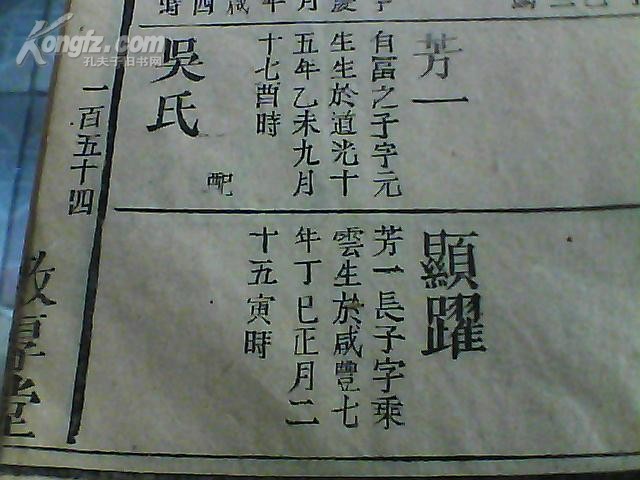 Kongfz.com
孔夫子旧书网
芳一
自冨之子字元
生生於道光十
五年乙未九月
十七酉時
吳氏
配
顯躍
芳一長子字乗
雲生於咸豐七
年丁巳正月二
十五寅時
一百五十四
敦厚堂